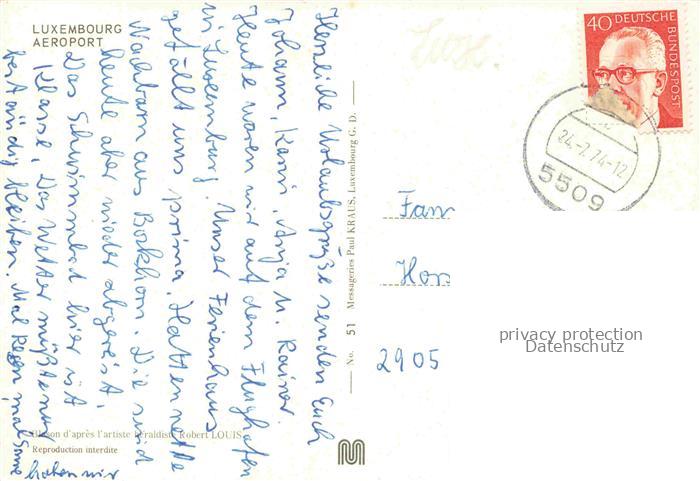 LUXEMBOURG
AEROPORT
Herzliche Urlaubsgrüße senden Euch
Johann, Anja u. Rainer
Heute waren wir auf dem Flughafen
in Luxemburg. Unser Ferienhaus
gefällt uns prima. Hatten nette
Nachbarn aus Bockhorn. Die sind
heute aber wieder abgereist.
Das Schwimmbad hier ist
Klasse. Das Wetter müßte nur
beständig bleiben. Mal Regen mal Sonne
haben wir
Blason d'après l'artiste héraldiste Robert LOUIS
Reproduction interdite
No. 51 Messageries Paul KRAUS, Luxembourg G. D.
40 DEUTSCHE
BUNDESPOST
24.-7.74-12
5509
Fam
Hor
2905
privacy protection
Datenschutz